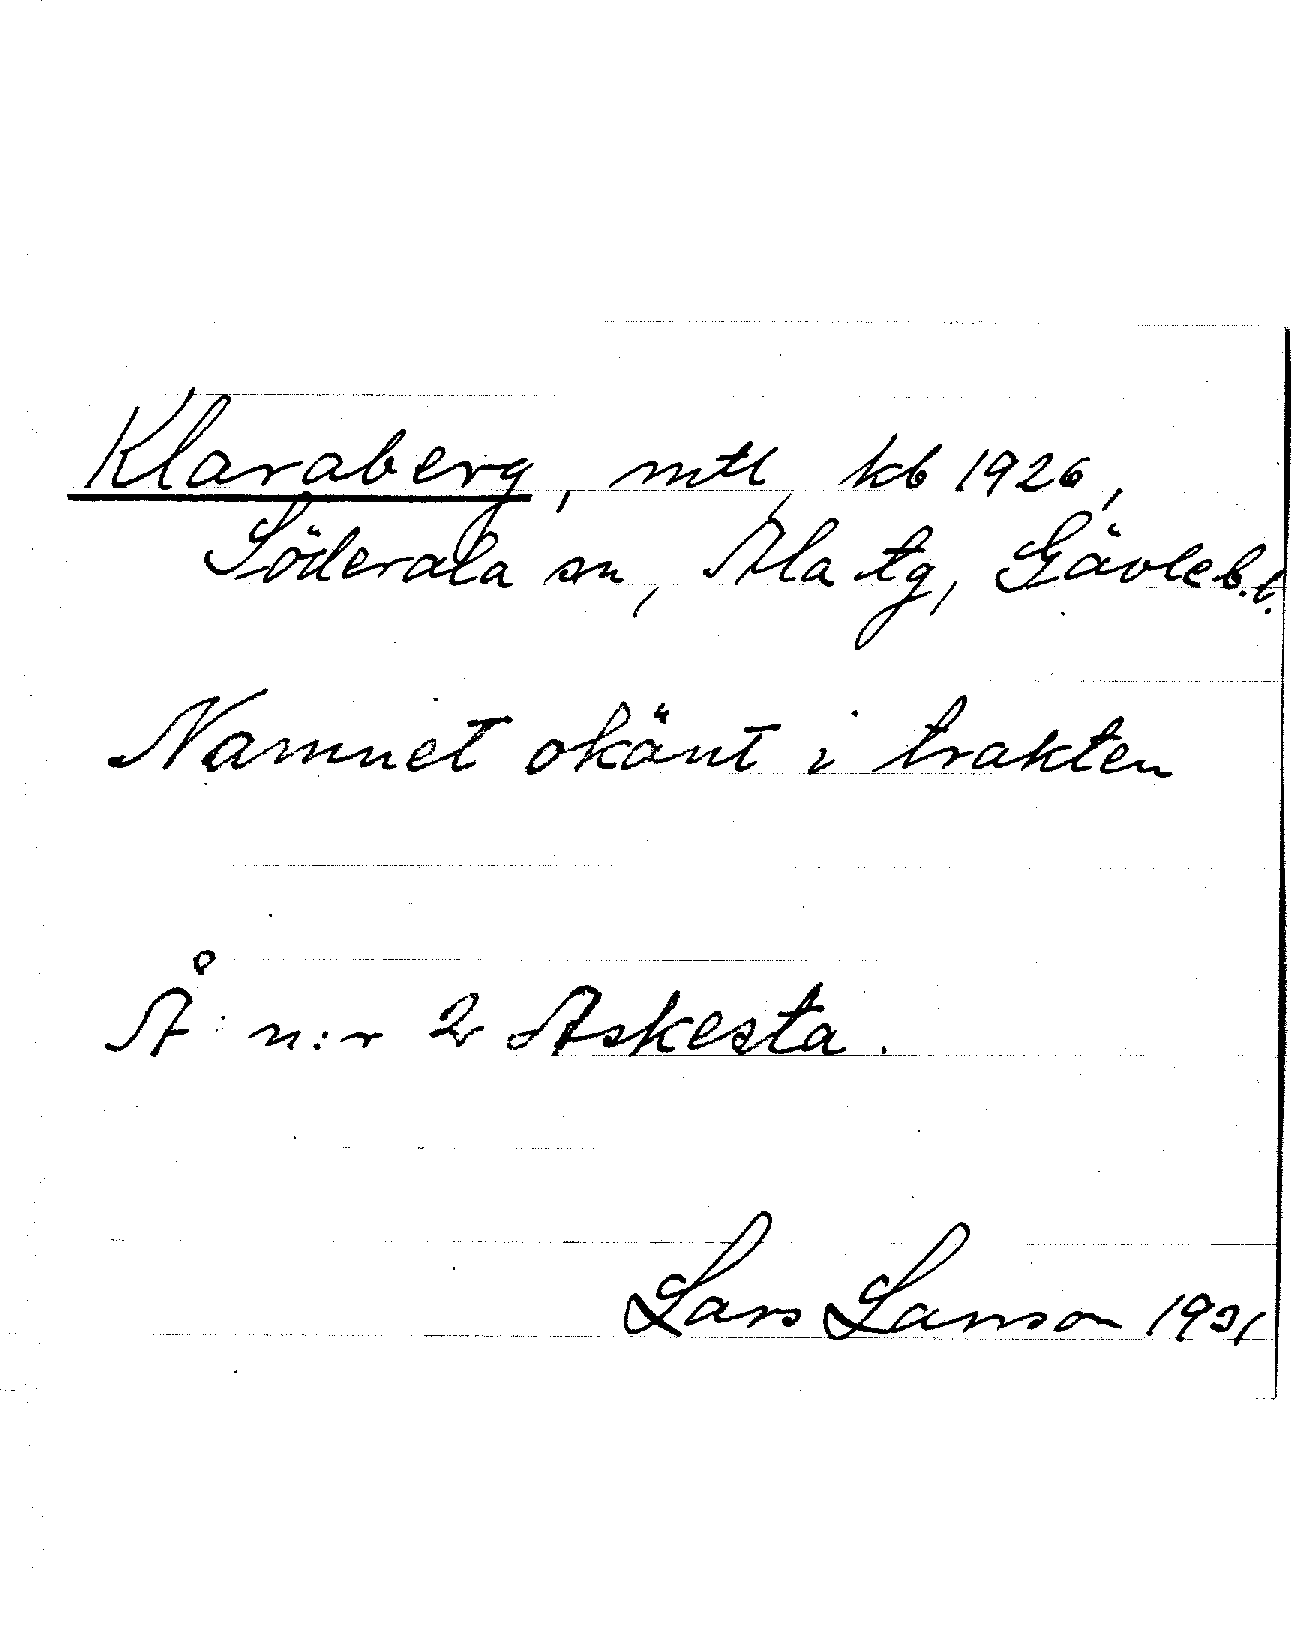 Klaraberg, mtl, kb 1926,
Söderala sn, Ala tg, Gävleb.l.
Namnet okänt i trakten
Å n:r 2 Askesta.
Lars Larsson 1931